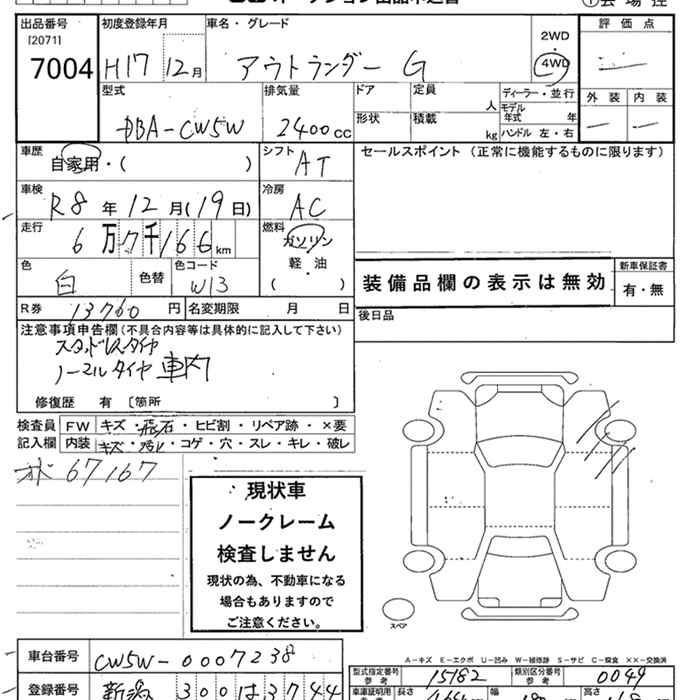 出品番号 初度登録年月 車名・グレード 評価点
[2071]
7004 H17 12月 アウトランダー G 2WD・4WD
外装 内装
型式 排気量 ドア 定員 人 ディーラー・並行
DBA-CW5W 2400cc 形状 積載 kg モデル年式 年
ハンドル 左・右
車歴 シフト セールスポイント(正常に機能するものに限ります)
自家用・( ) AT
車検 冷房
R8年12月(19日) AC
走行 燃料
6万7千166km ガソリン
軽・油
( )
色 色替 色コード
白 W13
装備品欄の表示は無効 新車保証書
有・無
R券 13760円 名変期限 月 日 後日品
注意事項申告欄(不具合内容等は具体的に記入して下さい)
スタッドレスタイヤ
ノーマルタイヤ車内
修復歴 有 〔箇所 〕
検査員 FW キズ・飛石・ヒビ割・リペア跡・×要
記入欄 内装 キズ・汚れ・コゲ・穴・スレ・キレ・破レ
オド 67167
現状車
ノークレーム
検査しません
現状の為、不動車になる
場合もありますので
ご注意ください。
スペア
A-キズ E-エクボ U-凹み W-補修跡 S-サビ C-腐食 ××-交換済
車台番号 CW5W-0007238
型式指定番号 参考 15182 類別区分番号 参考 0049
登録番号 300 は 3744
車庫証明用 長さ 幅 高さ